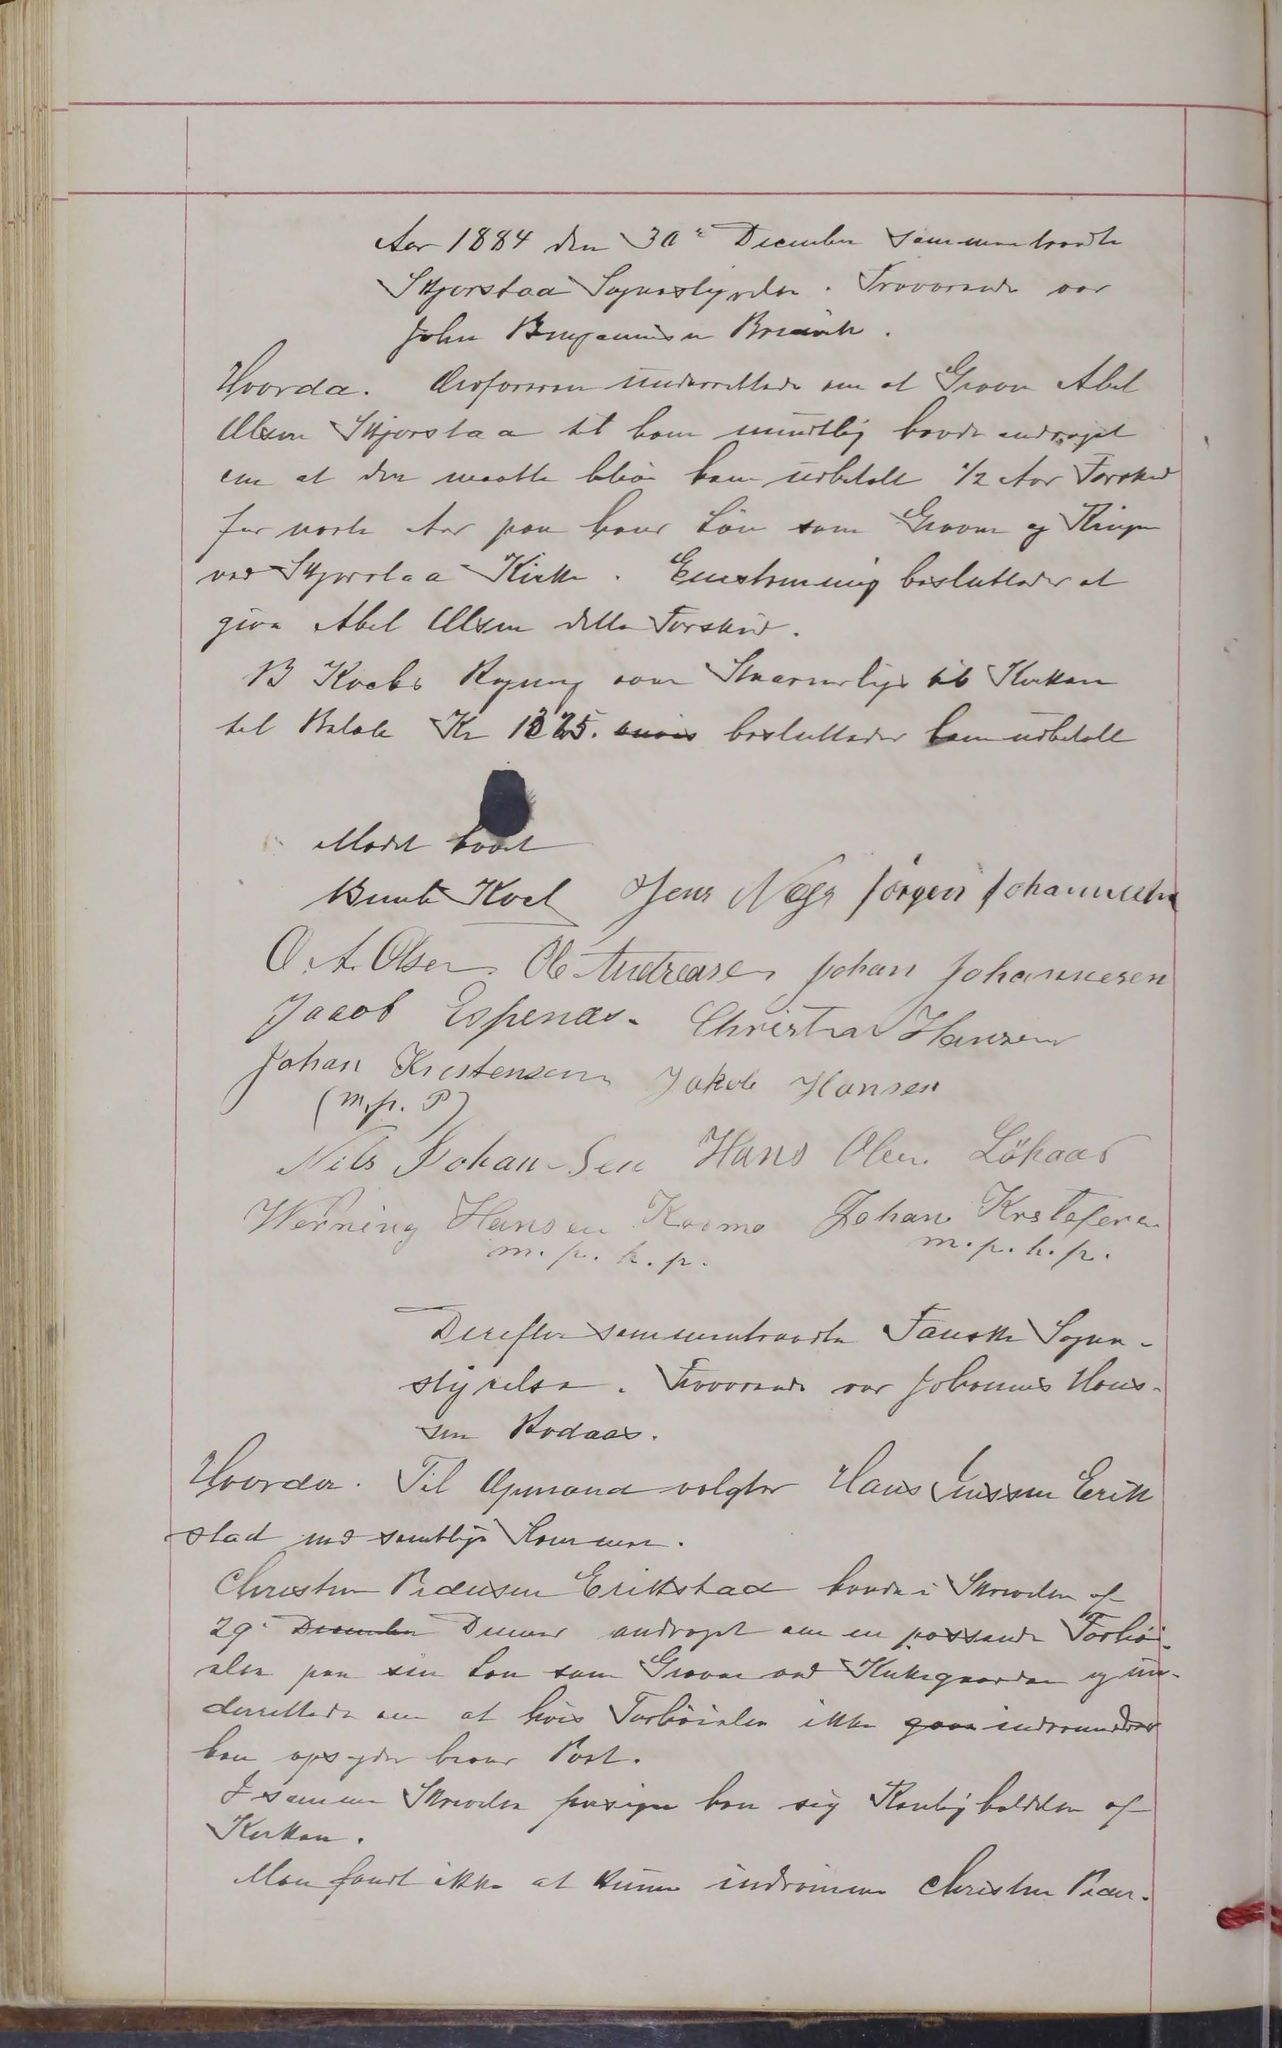 Aar 1884 den 30te December sammentraadte
Skjerstad Sognestyrelse. Fraværende var
John Benjaminsen
Hvorda. Ordføreren underrettede om at Graver Abel
Olsen Skjerstad til ham mundtlig havde andraget
om at der maatte blive ham udbetalt 1/2 Aar Forskud
for næste Aar paa hans Løn som Graver og Ringer
ved Skjerstad Kirke. Enstemmig besluttedes at
give Abel Olsen dette Forskud.
B Koebs Regning over til Kirken
til Beløb Kr besluttedes ham udbetalt
Mødet hævet
Bernt Koel Jens Jørgen Johannesen
O. A. Olsen Ole Andreasen Johan Johannesen
Jacob Espenæs. Christian Hansen
Johan Kristensen Jakob Hansen
(m. p. P)
Nils Johansen Hans Olsen Løkaas
Werning Hansen Kosmo Johan Kristofersen
m. p. h. p. m. p. h. p.
Derefter sammentraadte Fauske Sogne-
styrelse. Fraværende var Johannes Han-
sen Rødaas.
Hvorda. Til Opmand valgtes Hans Jensen Erik
stad med samtlige Stemmer.
Christen Pedersen Erikstad havde i Skrivelse af
29. December Dennes andraget om en passende Forhøi-
else paa sin Løn som Graver ved Kirkegaarden og un-
derrettede om at hvis Forhøielse ikke indrømmedes
han opsyder hans Post.
I samme Skrivelse frasiger han sig Renligholdelse af
Kirken.
Man fandt ikke at kunne indrømme Christen Peder-